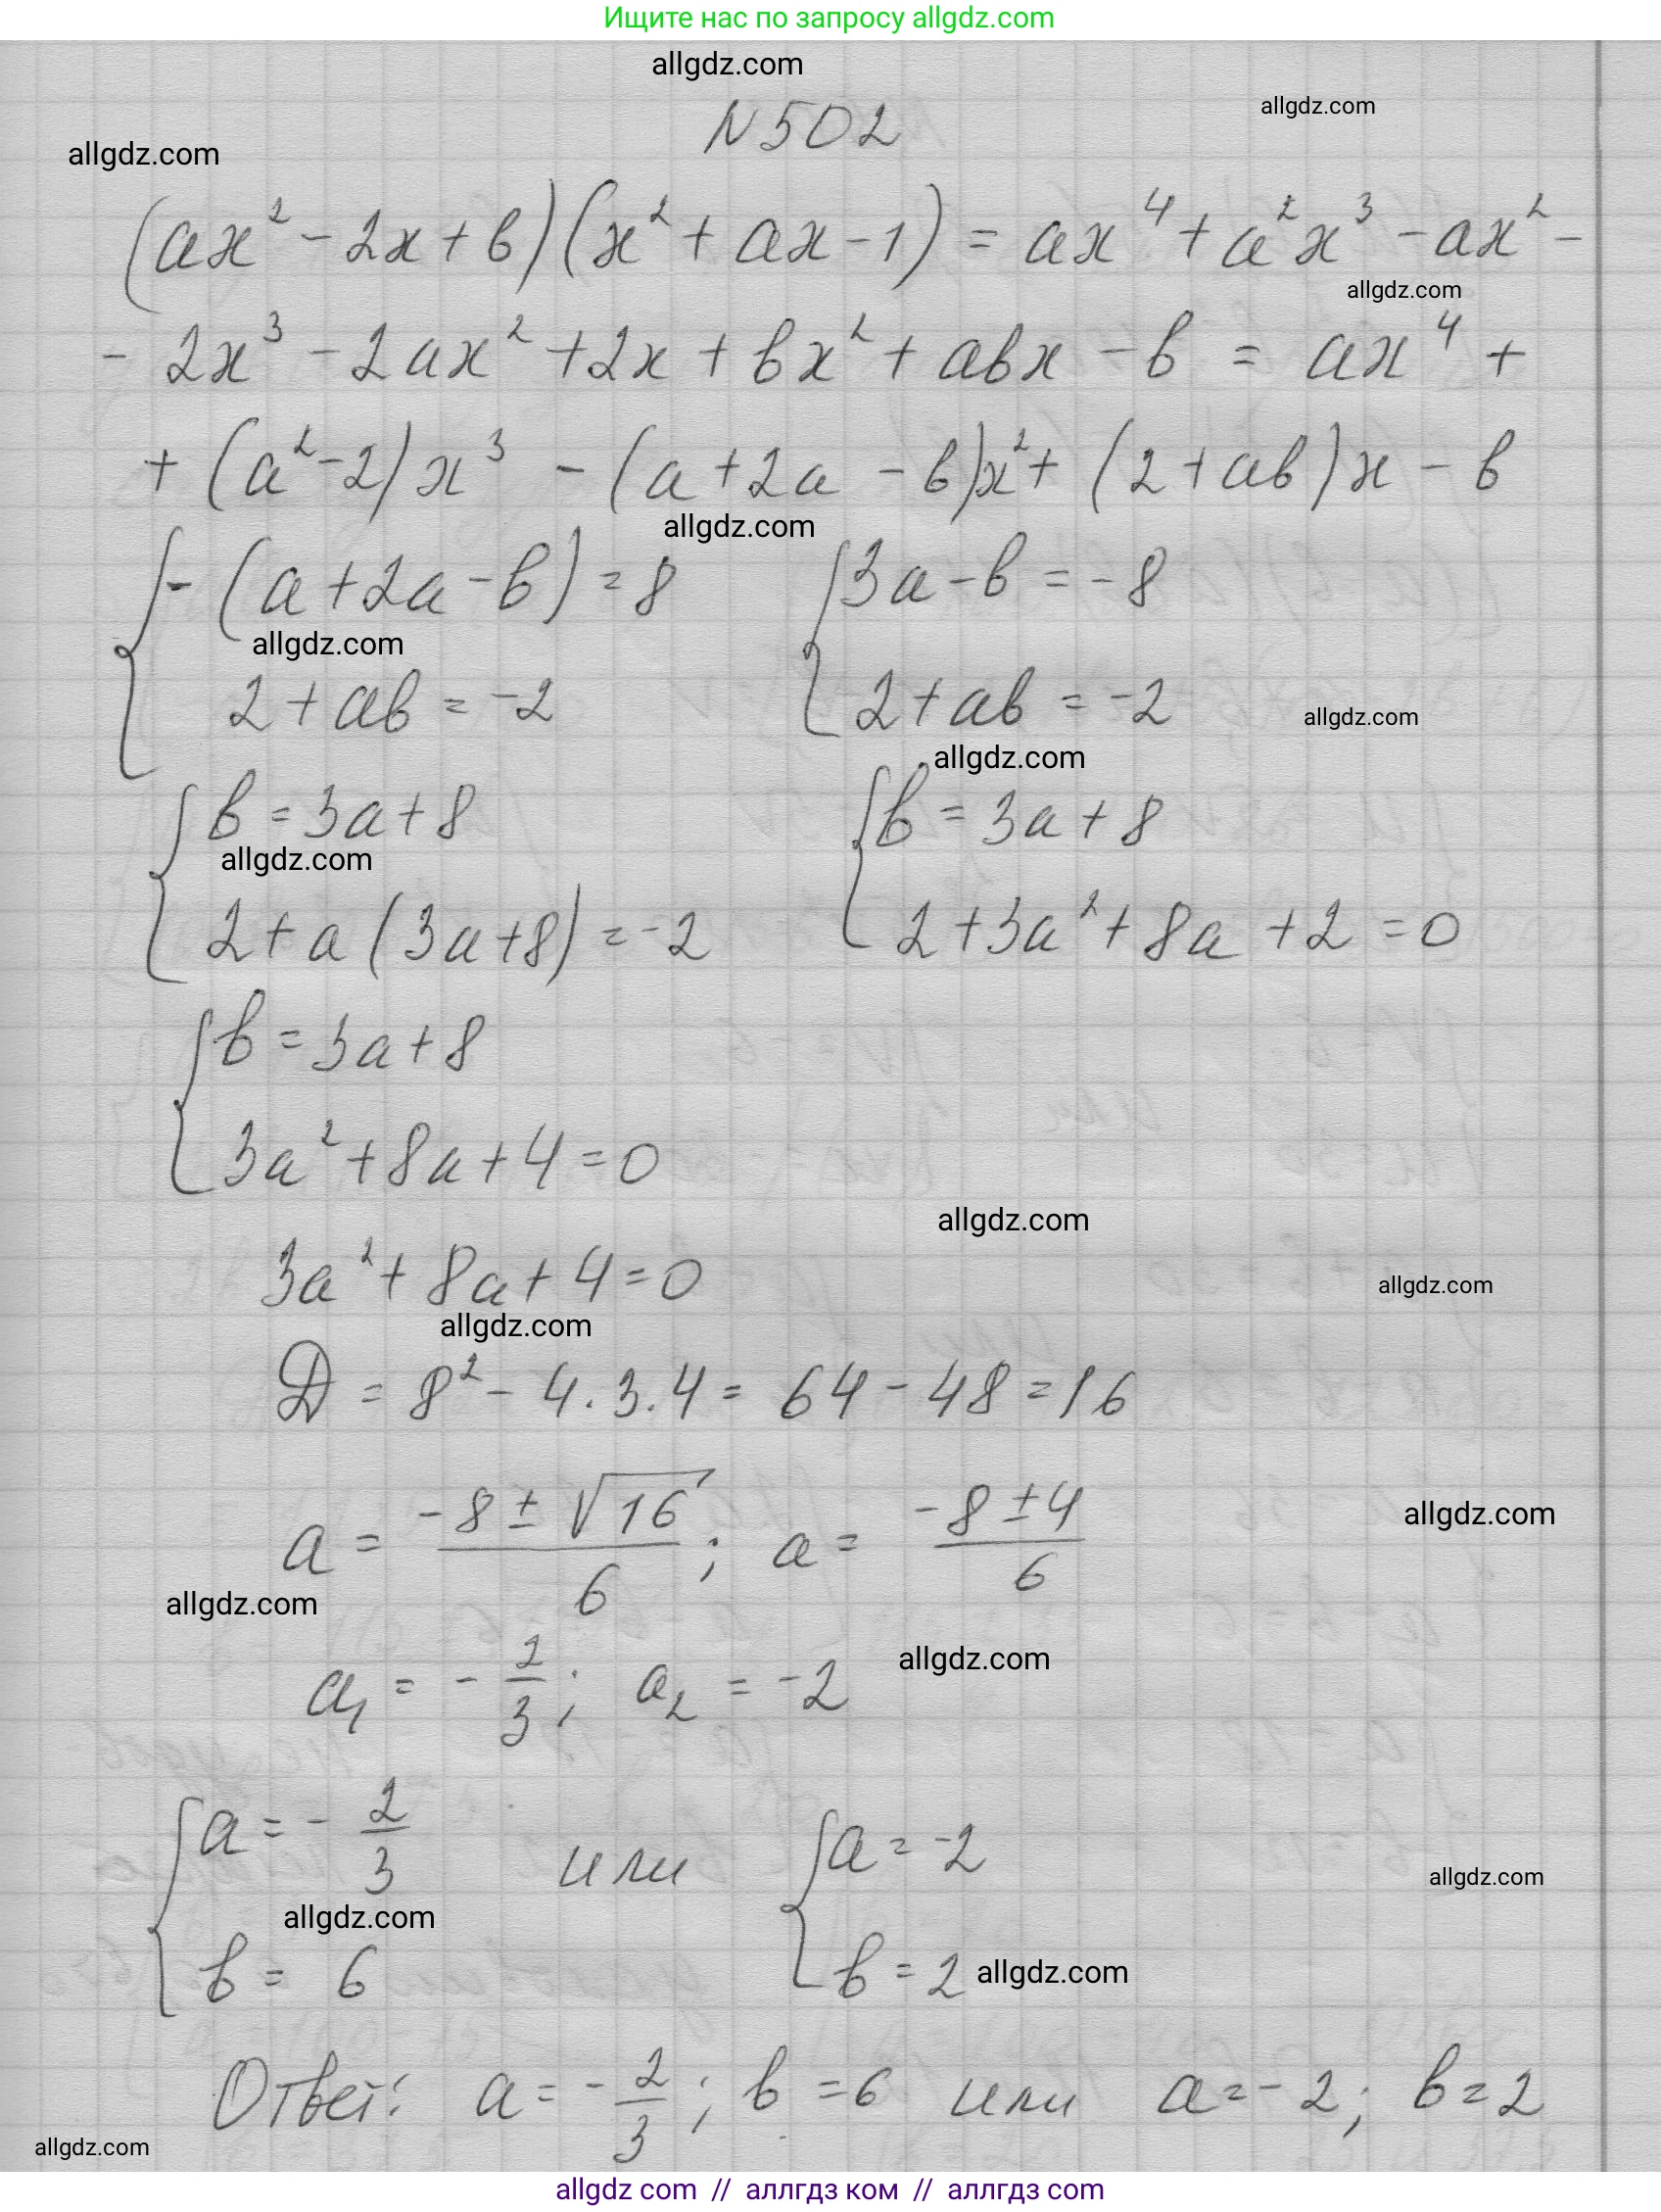 Ищите нас по запросу allgdz.com
allgdz.com
allgdz.com
N 502
allgdz.com
(ax² - 2x + b)(x² + ax - 1) = ax⁴ + a²x³ - ax² -
allgdz.com
- 2x³ - 2ax² + 2x + bx² + abx - b = ax⁴ +
+ (a² - 2)x³ - (a + 2a - b)x² + (2 + ab)x - b
allgdz.com
{ - (a + 2a - b) = 8 { 3a - b = -8
allgdz.com
2 + ab = -2 2 + ab = -2
allgdz.com
allgdz.com
{ b = 3a + 8 { b = 3a + 8
allgdz.com
2 + a(3a + 8) = -2 2 + 3a² + 8a + 2 = 0
{ b = 3a + 8
3a² + 8a + 4 = 0
allgdz.com
3a² + 8a + 4 = 0
allgdz.com
allgdz.com
D = 8² - 4 · 3 · 4 = 64 - 48 = 16
a = (-8 ± √16)/6 ; a = (-8 ± 4)/6
allgdz.com
allgdz.com
a₁ = - 2/3 ; a₂ = -2
allgdz.com
{ a = - 2/3 или { a = -2
allgdz.com
allgdz.com
b = 6 b = 2
allgdz.com
Ответ: a = - 2/3 ; b = 6 или a = - 2 ; b = 2
allgdz.com
allgdz com // аллгдз ком // аллгдз com